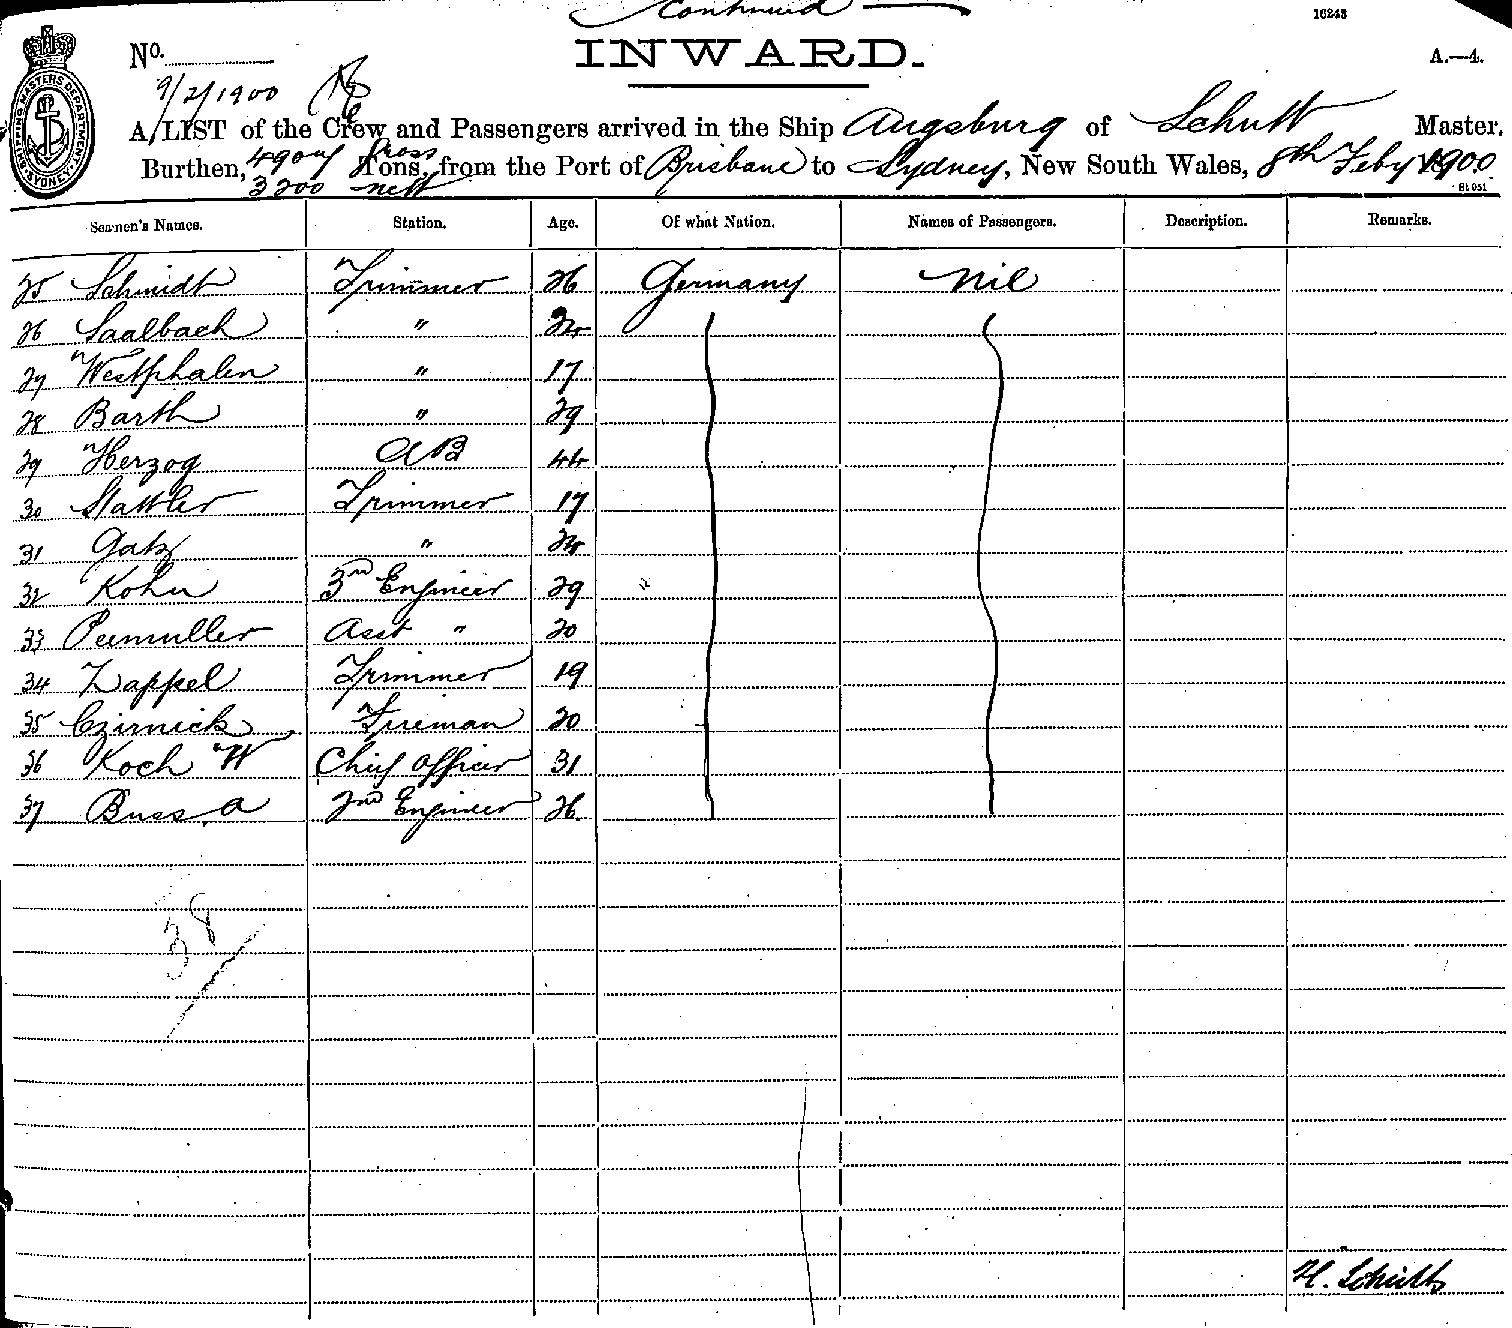 Continued
16243
No.
INWARD.
A.—4.
9/2/1900
SHIPPING MASTERS DEPARTMENT SYDNEY
A LIST of the Crew and Passengers arrived in the Ship Augsburg of Schutt Master,
Burthen, 4907 Gross Tons, from the Port of Brisbane to Sydney, New South Wales, 8th Feby 1900
3200 nett
Seamen's Names. Station. Age. Of what Nation. Names of Passengers. Description. Remarks.
25 Schmidt Trimmer 26 Germany Nil
26 Saalbach " 24
27 Westphalen " 17
28 Barth " 29
29 Herzog AB 44
30 Stattler Trimmer 17
31 Gatz " 24
32 Kohn 3rd Engineer 29
33 Peemuller Asst " 20
34 Zappel Trimmer 19
35 Czirnick Fireman 20
36 Koch W Chief Officer 31
37 Buss. A 2nd Engineer 26
38
H. Schutt